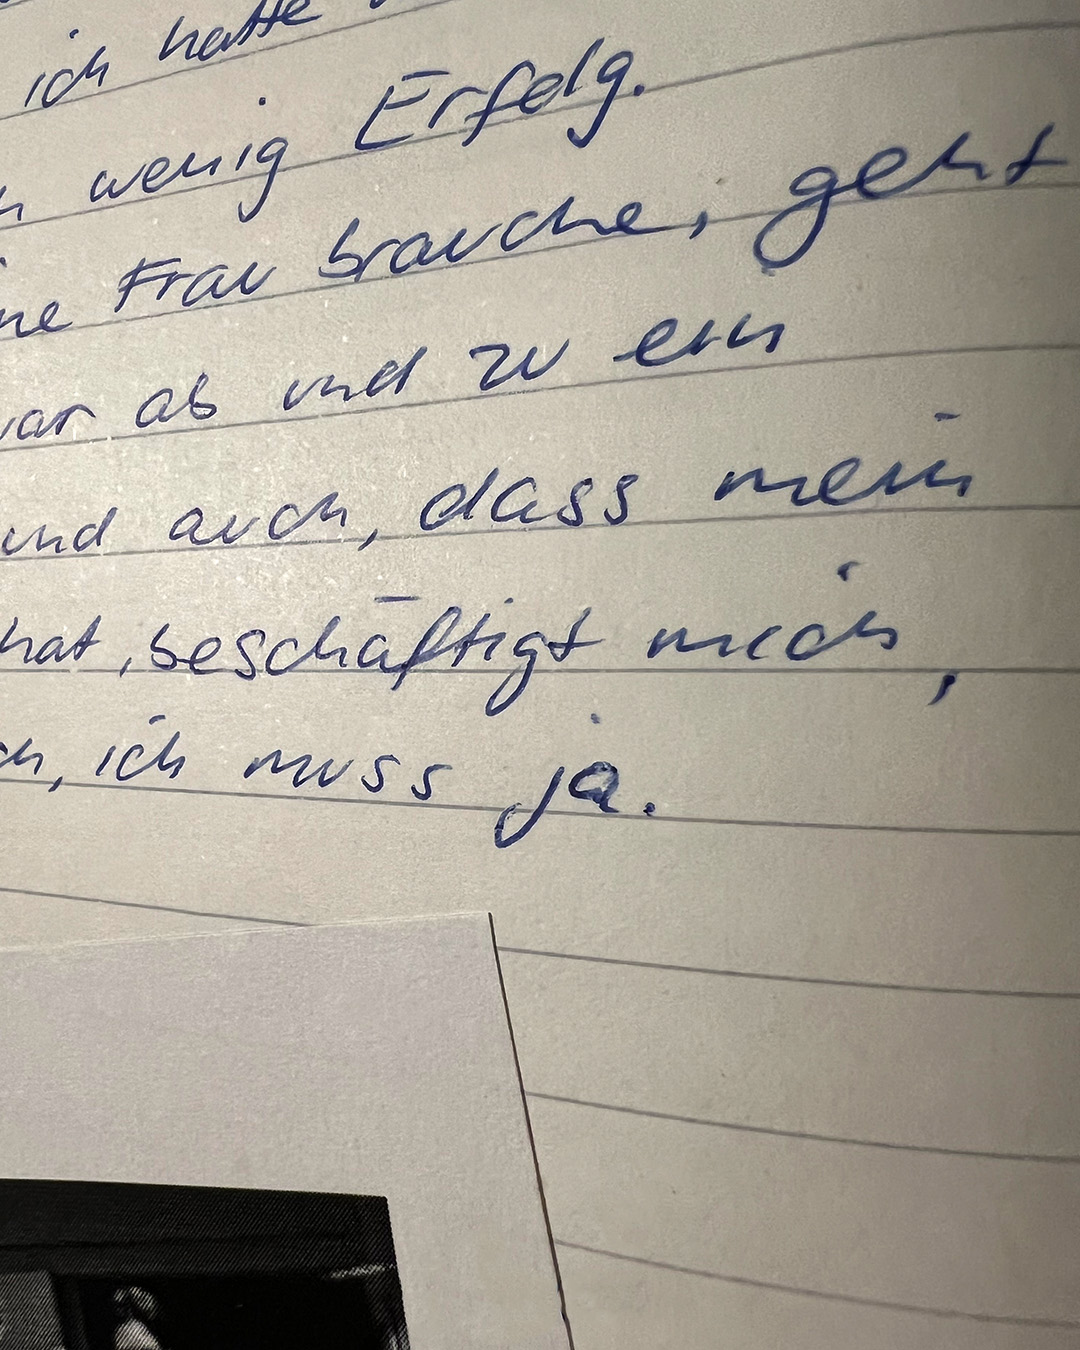 ich hatte
wenig Erfolg.
Frau brauche, geht
ab und zu ein
und auch, dass mein
hat, beschäftigt mich,
ich muss ja.